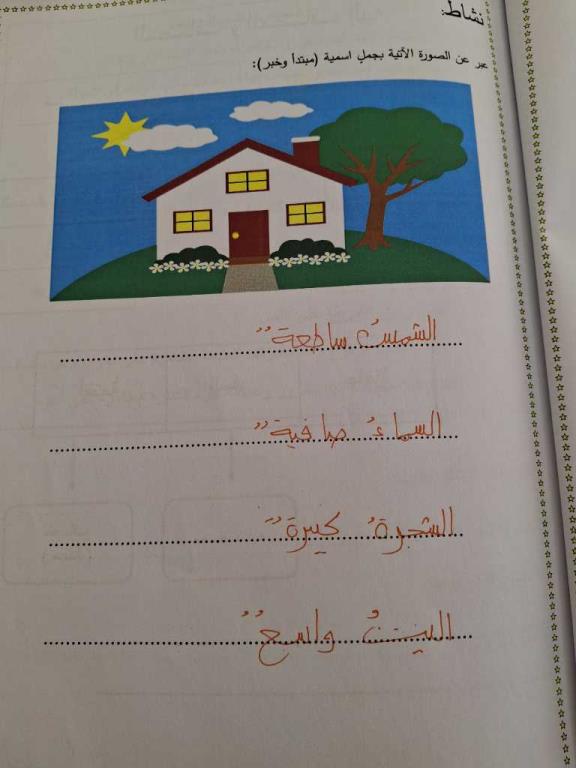 نشاط:
عبر عن الصورة الآتية بجمل اسمية (مبتدأ وخبر):
الشمسُ ساطعةٌ
السماءُ صافيةٌ
الشجرةُ كبيرةٌ
البيتُ واسعٌ